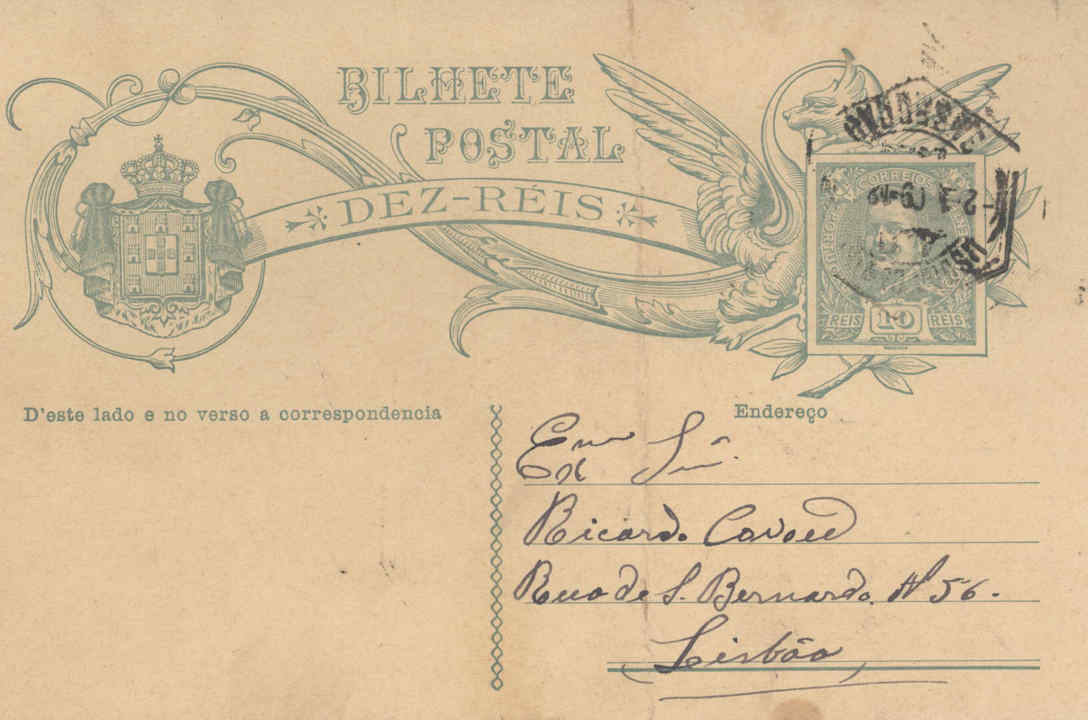 BILHETE
POSTAL
DEZ-RÉIS
CORREIOS
REIS 10 REIS
D'este lado e no verso a correspondencia
Endereço
Exmo Snr.
Ricardo
Rua de S. Bernardo. Nº 56.
Lisbôa